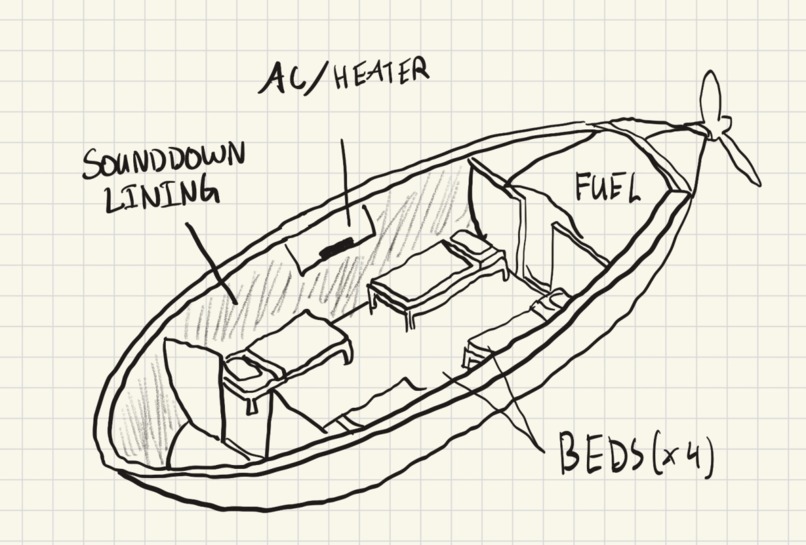 AC/HEATER
SOUNDDOWN
LINING
FUEL
BEDS(x4)